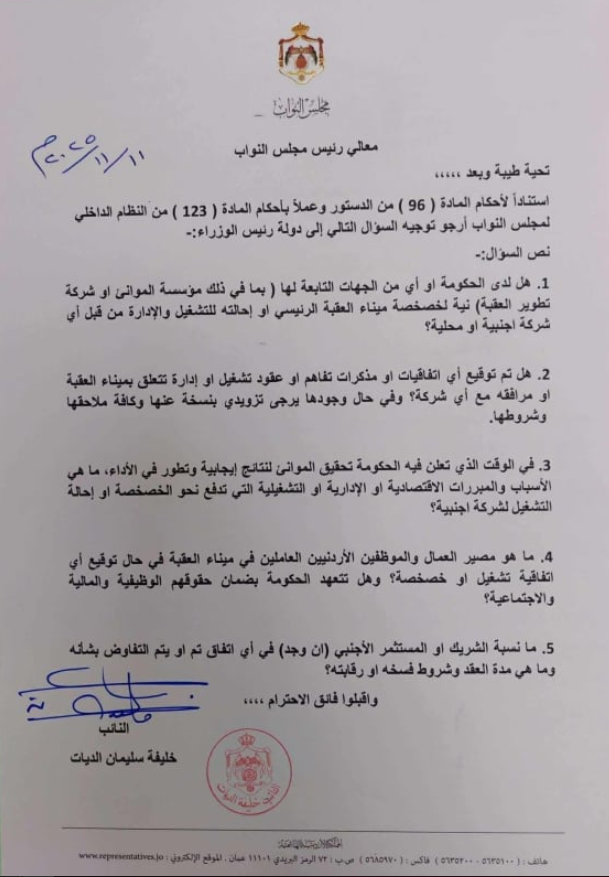 مجلس النواب
٢٠٢٥/١١/١١ م
معالي رئيس مجلس النواب
تحية طيبة وبعد ,,,,,
استناداً لأحكام المادة ( 96 ) من الدستور وعملاً بأحكام المادة ( 123 ) من النظام الداخلي
لمجلس النواب أرجو توجيه السؤال التالي إلى دولة رئيس الوزراء:-
نص السؤال:-
1. هل لدى الحكومة او أي من الجهات التابعة لها ( بما في ذلك مؤسسة الموانئ او شركة
تطوير العقبة) نية لخصخصة ميناء العقبة الرئيسي او إحالته للتشغيل والإدارة من قبل أي
شركة اجنبية او محلية؟
2. هل تم توقيع أي اتفاقيات او مذكرات تفاهم او عقود تشغيل او إدارة تتعلق بميناء العقبة
او مرافقه مع أي شركة؟ وفي حال وجودها يرجى تزويدي بنسخة عنها وكافة ملاحقها
وشروطها.
3. في الوقت الذي تعلن فيه الحكومة تحقيق الموانئ لنتائج إيجابية وتطور في الأداء، ما هي
الأسباب والمبررات الاقتصادية او الإدارية او التشغيلية التي تدفع نحو الخصخصة او إحالة
التشغيل لشركة اجنبية؟
4. ما هو مصير العمال والموظفين الأردنيين العاملين في ميناء العقبة في حال توقيع أي
اتفاقية تشغيل او خصخصة؟ وهل تتعهد الحكومة بضمان حقوقهم الوظيفية والمالية
والاجتماعية؟
5. ما نسبة الشريك او المستثمر الأجنبي (ان وجد) في أي اتفاق تم او يتم التفاوض بشأنه
وما هي مدة العقد وشروط فسخه او رقابته؟
واقبلوا فائق الاحترام ,,,,
النائب
خليفة سليمان الديات
النائب خليفة الديات
المملكة الأردنية الهاشمية
هاتف : ( ٥٦٣٥١٠٠ - ٥٦٣٥٢٠٠ ) فاكس : ( ٥٦٨٥٩٧٠ ) ص.ب : ٧٢ الرمز البريدي ١١١٠١ عمان . الموقع الإلكتروني : www.representatives.jo